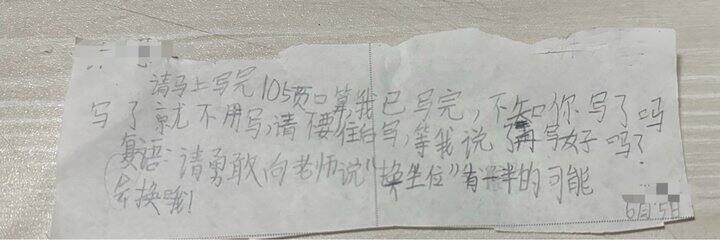 请马上写完105页口算,我已写完,不知你写了吗
写了就不用写,请不要往后写,等我说了再写好吗?
复语:请勇敢向老师说"换坐位"有一半的可能
会换哦!
6月5日